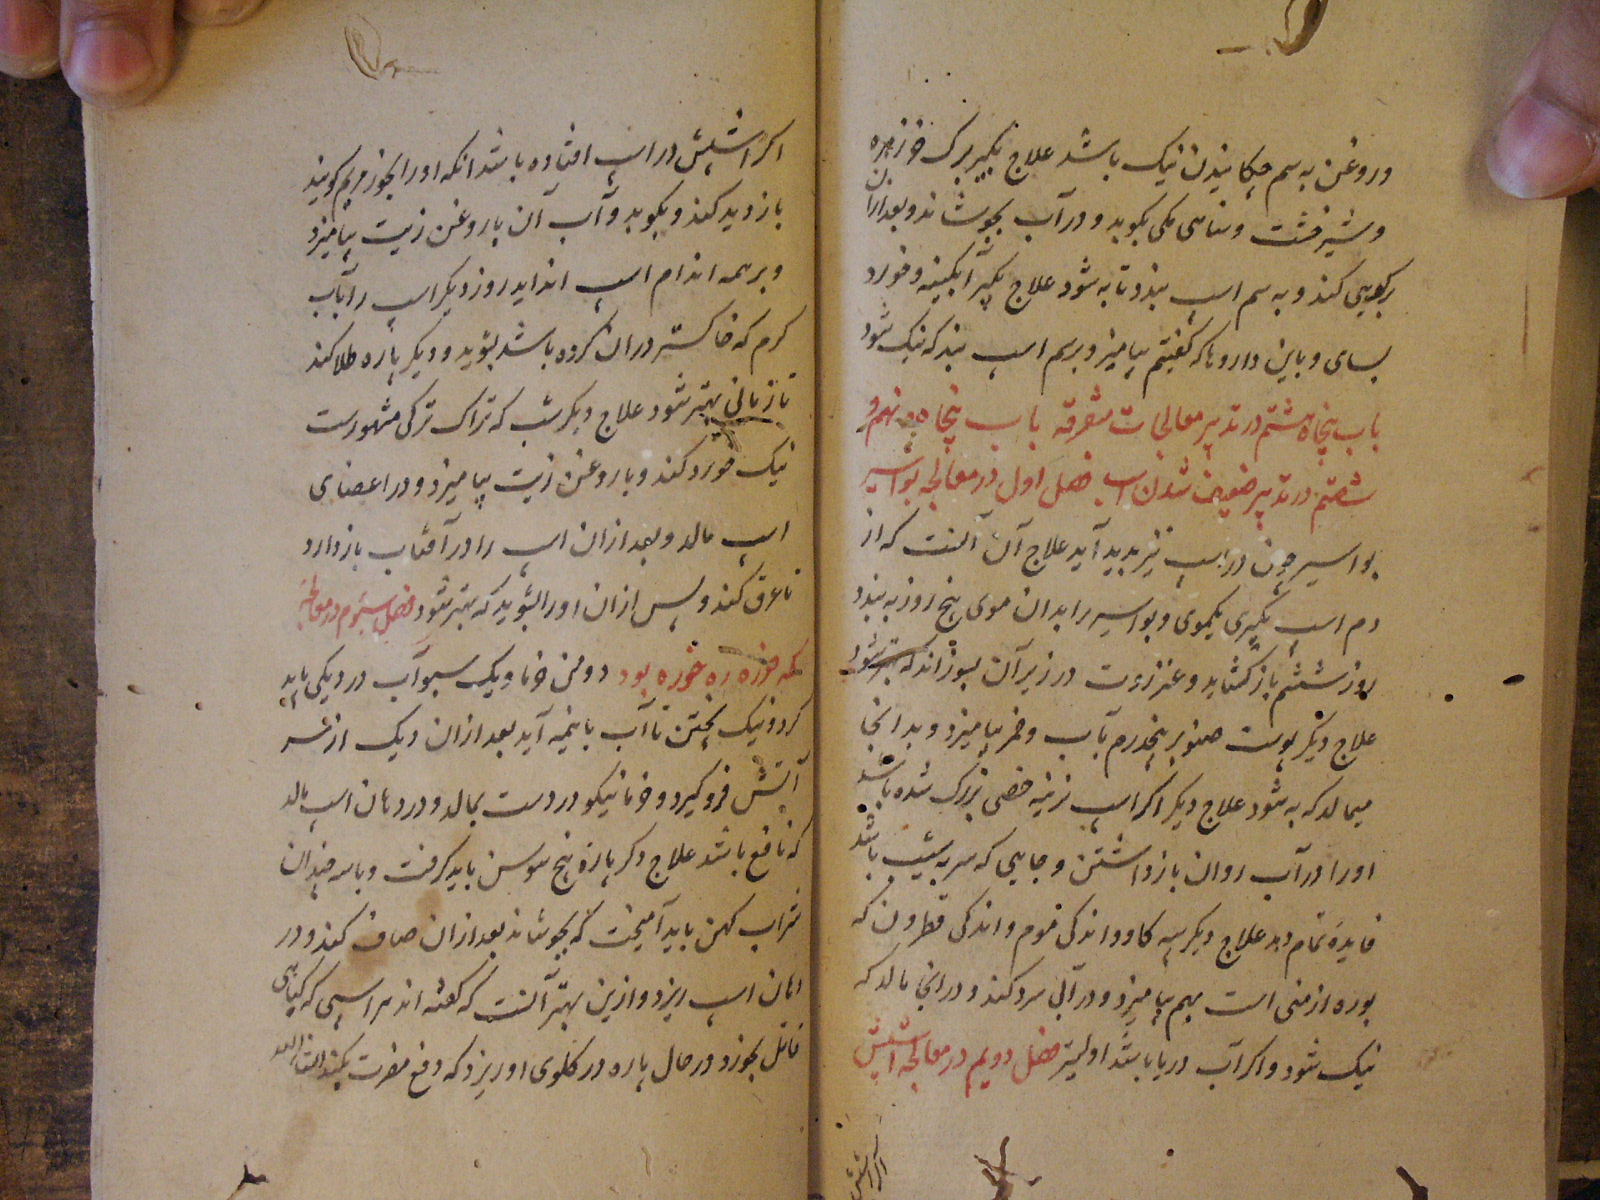 وروغن به سم چکانیدن نیک باشد علاج بگیر برک خرزهره
وشیرخشت وسنای مکی بکوبد و در آب بجوشاند وبعد ازان
برکوبی کند و به سم اسب بندد تا به شود علاج بگیر آبکینه وخورد
بسای و باین داروها که کفتیم بیامیز و برسم اسب بند که نیک شود
باب پنجاه هشتم در تدبیر معالجات متفرقه باب پنجاه ونهم و
شصتم در تدبیر ضعیف شدن اسب فصل اول در معالجه بواسیر
بواسیر چون در اسب نیز پدید آید علاج آن آنست که از
دم اسب بگیری یکموی و بواسیر را بدان موی پنج روز به بندد
روز ششم باز کشاید و عنزروت در زیر آن بسوزاند که بهتر شود
علاج دیگر پوست صنوبر پنجدرم بآب و خمر بیامیزد و بدانجا
میمالد که به شود علاج دیگر اگر اسب نرینه خصی بزرک شده باشد
اورا در آب روان بازداشتن و جایی که سربه شیب باشد
فایدهٔ تمام دهد علاج دیگر پیه کاو و اندکی موم و اندکی قطرون که
بوره ارمنی است بهم بیامیزد و در آبی سرد کند و در انجا مالد که
نیک شود و اکر آب دریا باشد اولیتر فصل دویم در معالجه اشپش
اکر اشپش
اکر اشپش در اسب افتاده باشد انکه اورا بخور مریم کویند
بازدید کند و بکوبد و آب آن با روغن زیت بیامیزد
و بر همه اندام اسب انداید روز دیگر اسب را بآب
کرم که خاکستر دران کرده باشد بشوید و دیگر باره طلا کند
تا زمانی بهتر شود علاج دیگر شب که تراک ترکی مشهورست
نیک خورد کند و با روغن زیت بیامیزد و در اعضای
اسب مالد و بعد ازان اسب را در آفتاب بازدارد
تا عرق کند و پس ازان اورا بشوید که بهتر شود فصل سیوم در معالجه
که خوزه ره خوره بود دو من خرما ویک سبو آب در دیکی باید
کرد و نیک پختن تا آب با نیمه آید بعد ازان دیک از سر
آتش فرو کیرد و خرما نیکو در دست بمالد و در دهان اسب مالد
که نافع باشد علاج دکر پاره بیخ سوسن باید کرفت و با سه چندان
شراب کهن باید آمیخت که بجوشاند بعد ازان صاف کند و در
دهان اسب ریزد و ازین بهتر آنست که کفته اند هر اسبی که کیاهی
قاتل بخورد در حال پاره در کلوی او ریزد که دفع مضرت بکند انشاالله